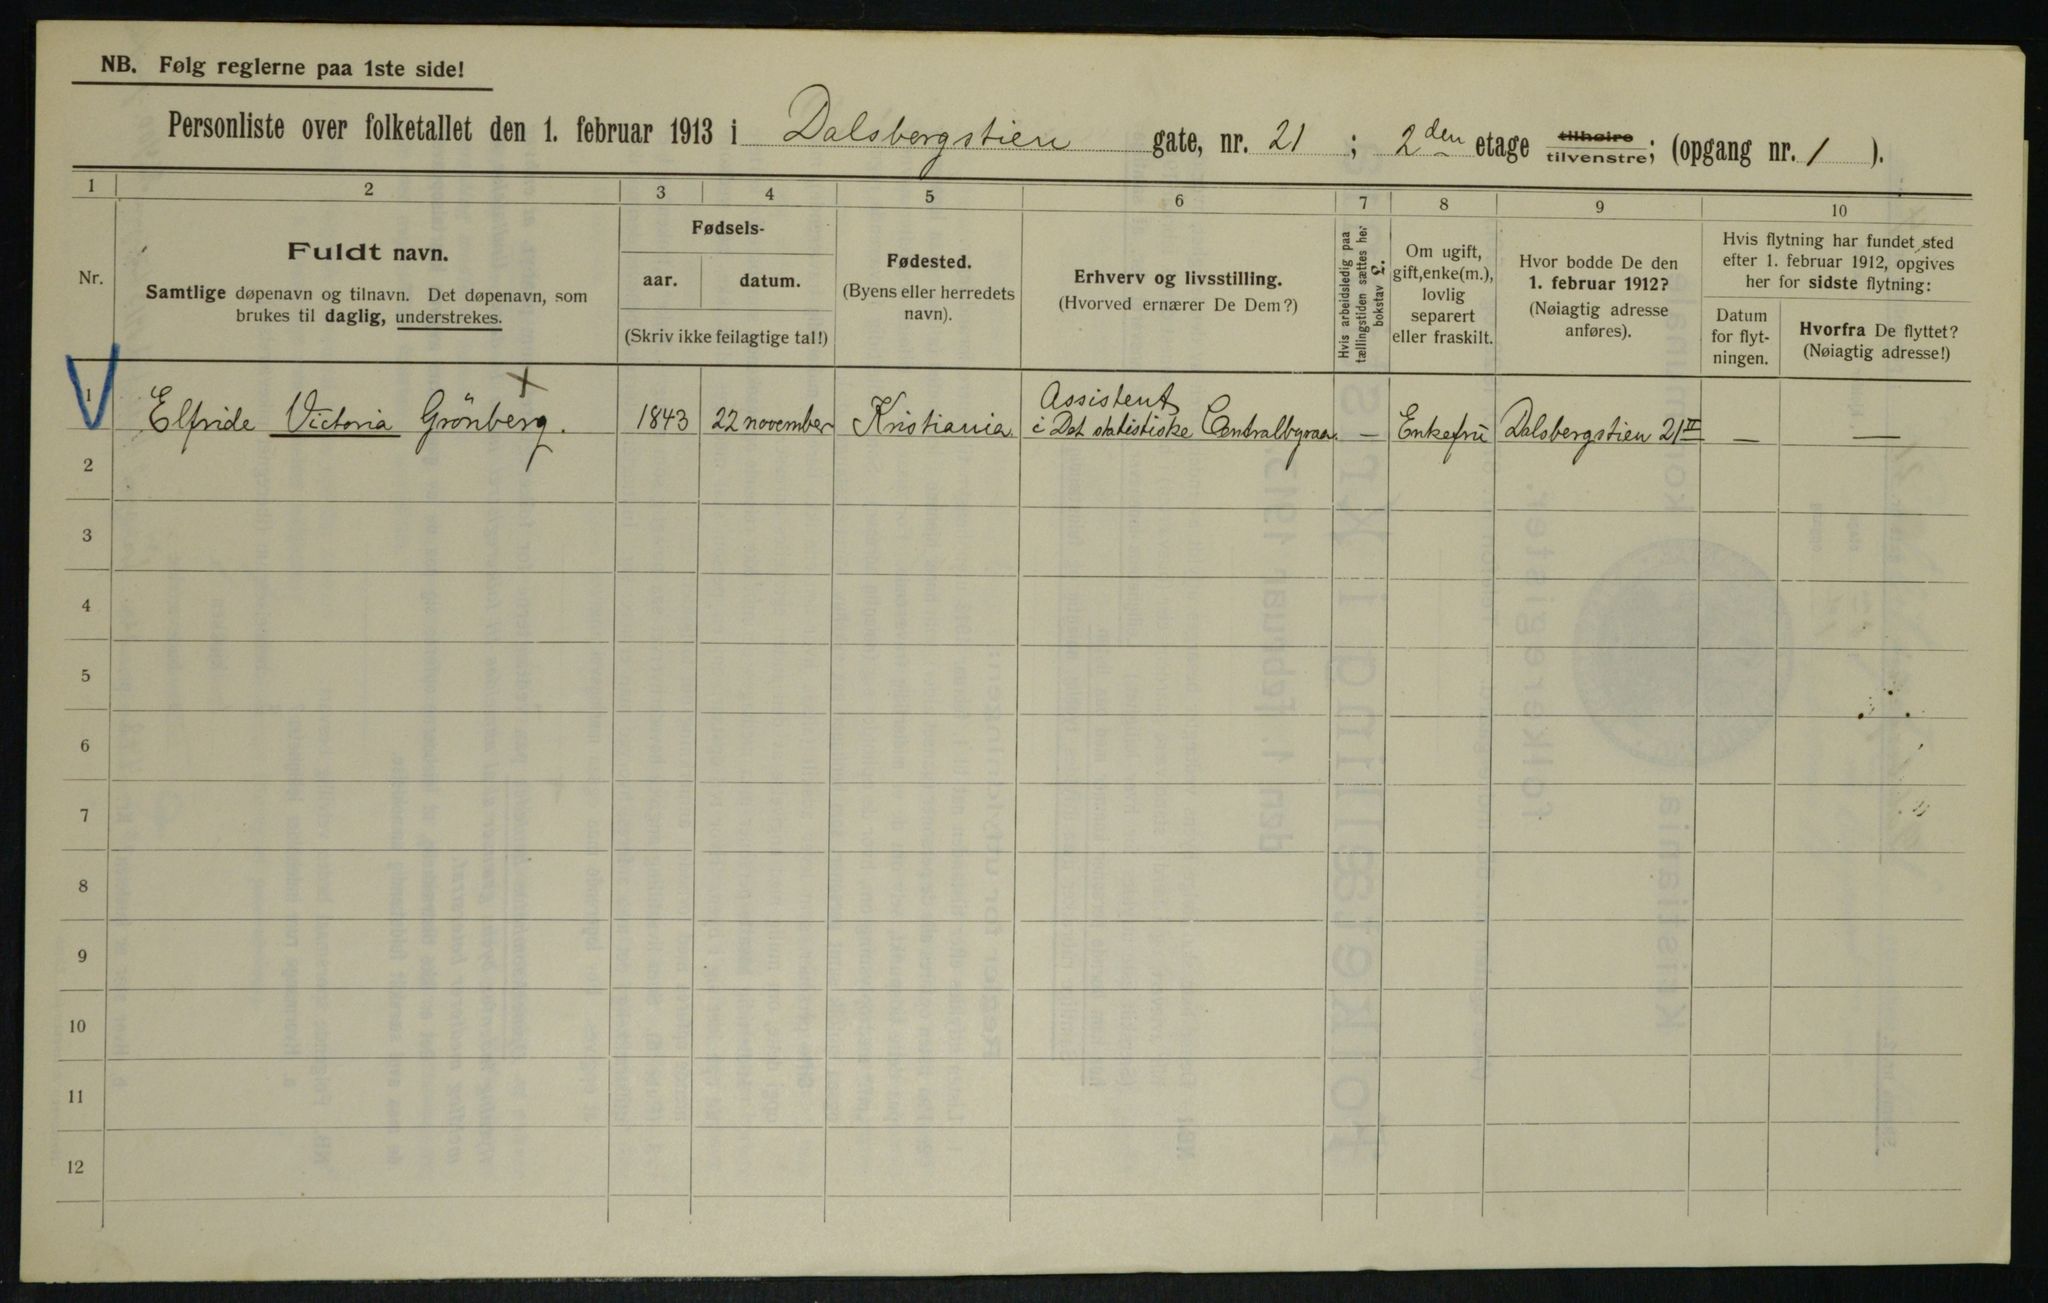 NB. Følg reglerne paa 1ste side!
Personliste over folketallet den 1. februar 1913 i Dalsbergstien gate, nr. 21 ; 2den etage tilhøire tilvenstre; (opgang nr. 1 ).
1 2 3 4 5 6 7 8 9 10
Nr.
Fuldt navn.
Samtlige døpenavn og tilnavn. Det døpenavn, som
brukes til daglig, understrekes.
Fødsels-
aar. datum.
(Skriv ikke feilagtige tal!)
Fødested.
(Byens eller herredets
navn).
Erhverv og livsstilling.
(Hvorved ernærer De Dem?)
Hvis arbeidsledig paa
tællingstiden sættes her
bokstav L.
Om ugift,
gift, enke(m.),
lovlig
separert
eller fraskilt.
Hvor bodde De den
1. februar 1912?
(Nøiagtig adresse
anføres).
Hvis flytning har fundet sted
efter 1. februar 1912, opgives
her for sidste flytning:
Datum
for flyt-
ningen.
Hvorfra De flyttet?
(Nøiagtig adresse!)
1 Elfride Victoria Grönberg. 1843 22 november Kristiania Assistent
i Det statistiske Centralbyraa. — Enkefru Dalsbergstien 21 II — —
2
3
4
5
6
7
8
9
10
11
12